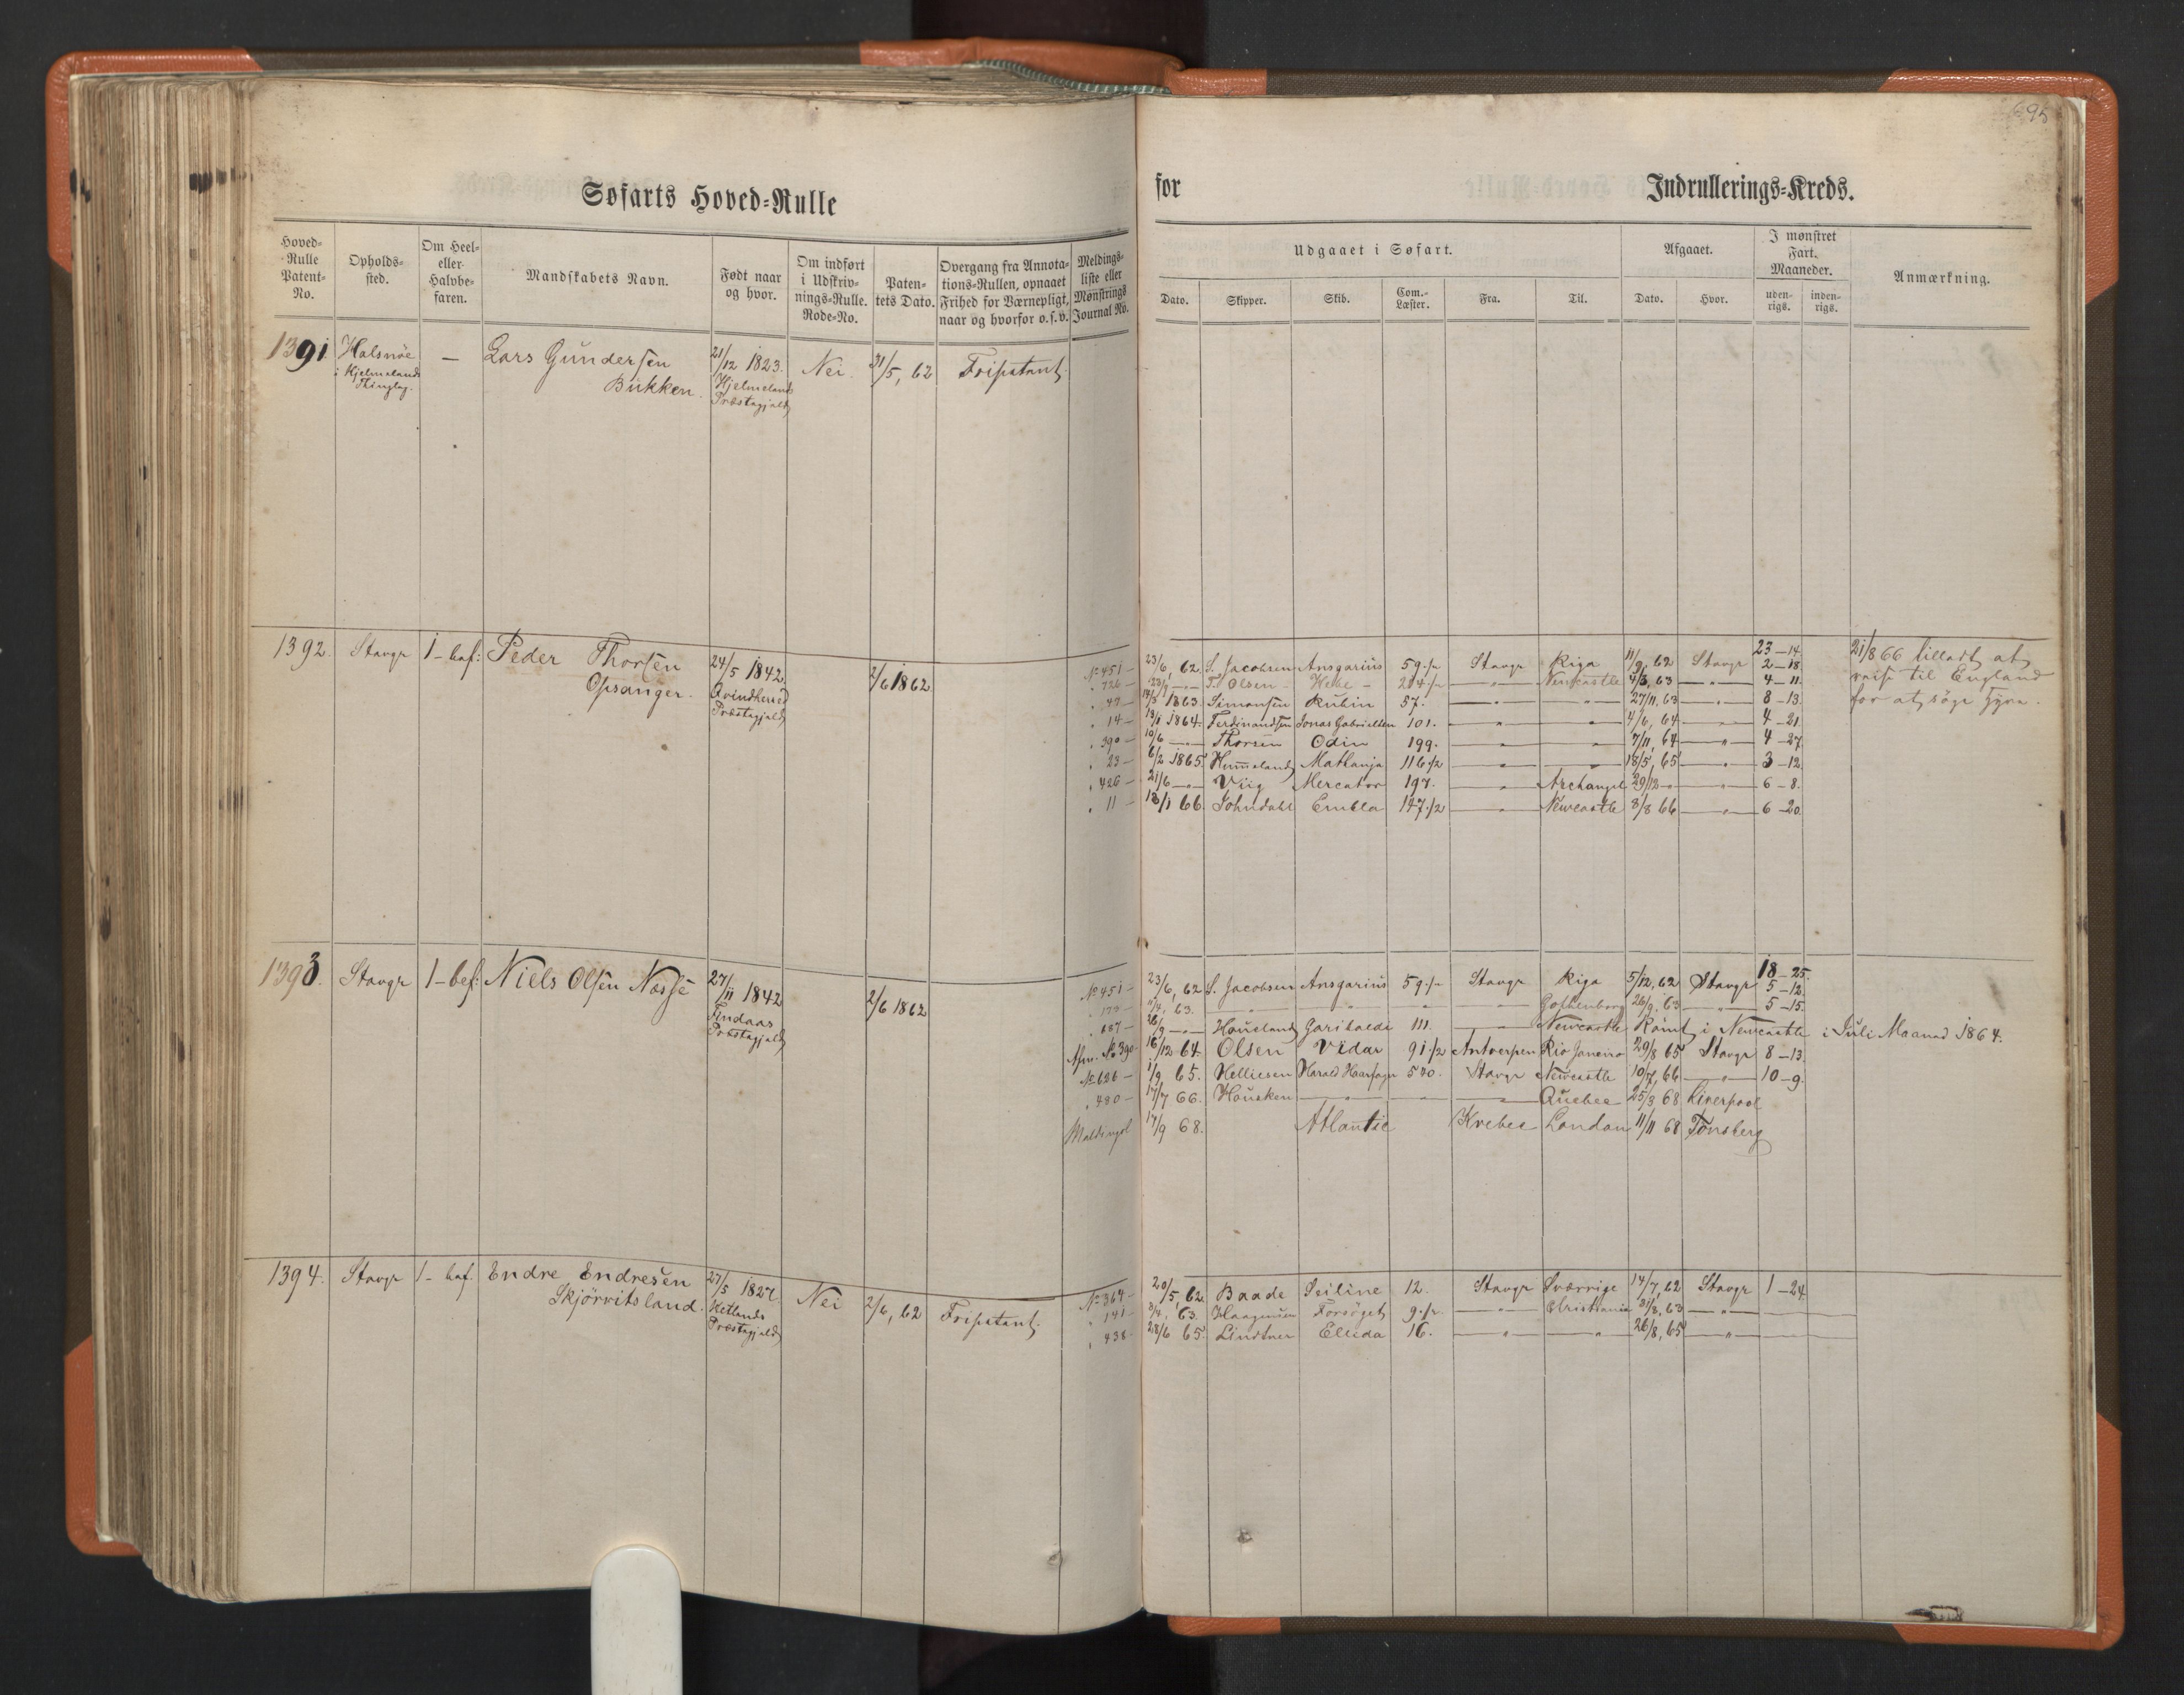 695
Søfarts Hoved-Rulle
for Indrullerings-Kreds.
Hoved-Rulle Patent-No.
Opholds-sted.
Om Heel- eller Halvbe-faren.
Mandskabets Navn.
Født naar og hvor.
Om indført i Udskriv-nings-Rulle. Rode-No.
Paten-tets Dato.
Overgang fra Annota-tions-Rullen, opnaaet Frihed for Værnepligt, naar og hvorfor o.s.v.
Meldings-liste eller Mønstrings Journal No.
Udgaaet i Søfart.
Afgaaet.
I mønstret Fart. Maaneder.
Anmærkning.
Dato. Skipper. Skib. Com.-Læster. Fra. Til. Dato. Hvor. uden-rigs. inden-rigs.
1391 Halsnöe — Lars Gundersen 21/12 1823. Nei 31/5, 62 Fripatent.
i Hjelmelands Bukken. Hjelmeland
Thinglag. Præstegjeld
1392. Stavgr 1-bef: Peder Thorsen 24/5 1842 2/6 1862
Opsanger. Qvindherred
Præstegjeld
23-14
No 451 - 23/6, 62. S. Jacobsen Ansgarius 59 1/2 Stavgr Riga 11/9, 62 Stavgr 2-18
" 726 - T. Olsen Hebe 214 1/2 — " — Newcastle 4/3, 63 — " — 4-11
" 47 - 14/5 1863. Simonsen Rubin 57. — " — " 27/11, 63 — " — 8-13
" 14 - 13/1 1864. Ferdinandsen Jonas Gabrielsen 101. — " — " 4/6, 64 — " — 4-21
" 390 - 10/6 — " — Thorsen Odin 199. — " — " 7/11, 64 — " — 4-27
" 23 - 6/2 1865 Hummeland Mathanja 116 1/2 — " — " 18/5, 65 — " — 3-12
" 426 - 21/6 — " — Viig Mercator 197. — " — Archangel 29/12 — " — " 6-8.
" 11 - 13/1 66. Johndahl Embla 147 1/2 — " — Newcastle 3/8 66 — " — 6-20
21/8 66 tilladt at
reise til England
for at söge Hyre.
1393. Stavgr 1-bef: Niels Olsen Næsse 27/11 1842 2/6 1862
Findaas
Præstegjeld
18-25.
No 451 - 23/6, 62 S. Jacobsen Ansgarius 59 1/2 Stavgr Riga 5/12, 62 Stavgr 5-12
" 173 - 7/4, 63. — " — " — " — " Gothenborg 26/9, 63 — " — 5-15
" 687 - 26/9 — " — Haueland Garibalde 111. — " — Newcastle Römt i Newcastle i Juli Maaned 1864.
No 390. 16/12 64. Olsen Vidar 91 1/2 Antverpen Rio Janeiro 29/8 65 Stavgr 8-13
No 626 - 1/9 65. Helliesen Harald Haarfagr 540. Stavgr Newcastle 10/7, 66 — " — 10-9
" 480 - 17/7 66. Housken — " — " — " — Quebec 25/3 68 Liverpool
17/9 68. Atlantic Kvebec London 11/11 68 Tönsberg
1394. Stavgr 1-bef. Endre Endresen 27/5 1827. Nei 2/6, 62 Fripatent.
Skjörvitsland. Hetlands
Præstegjeld
No 364 - 20/5, 62. Baade Seiline 12. Stavgr Sværrige 14/7, 62 Stavgr 1-24
" 141 - 8/4, 63. Haagensen Forsöget 9 1/2. — " — Christiania 31/8, 63 — " —
" 438 - 28/6 65. Lindtner Eleida 16. — " — " 26/8, 65 — " —